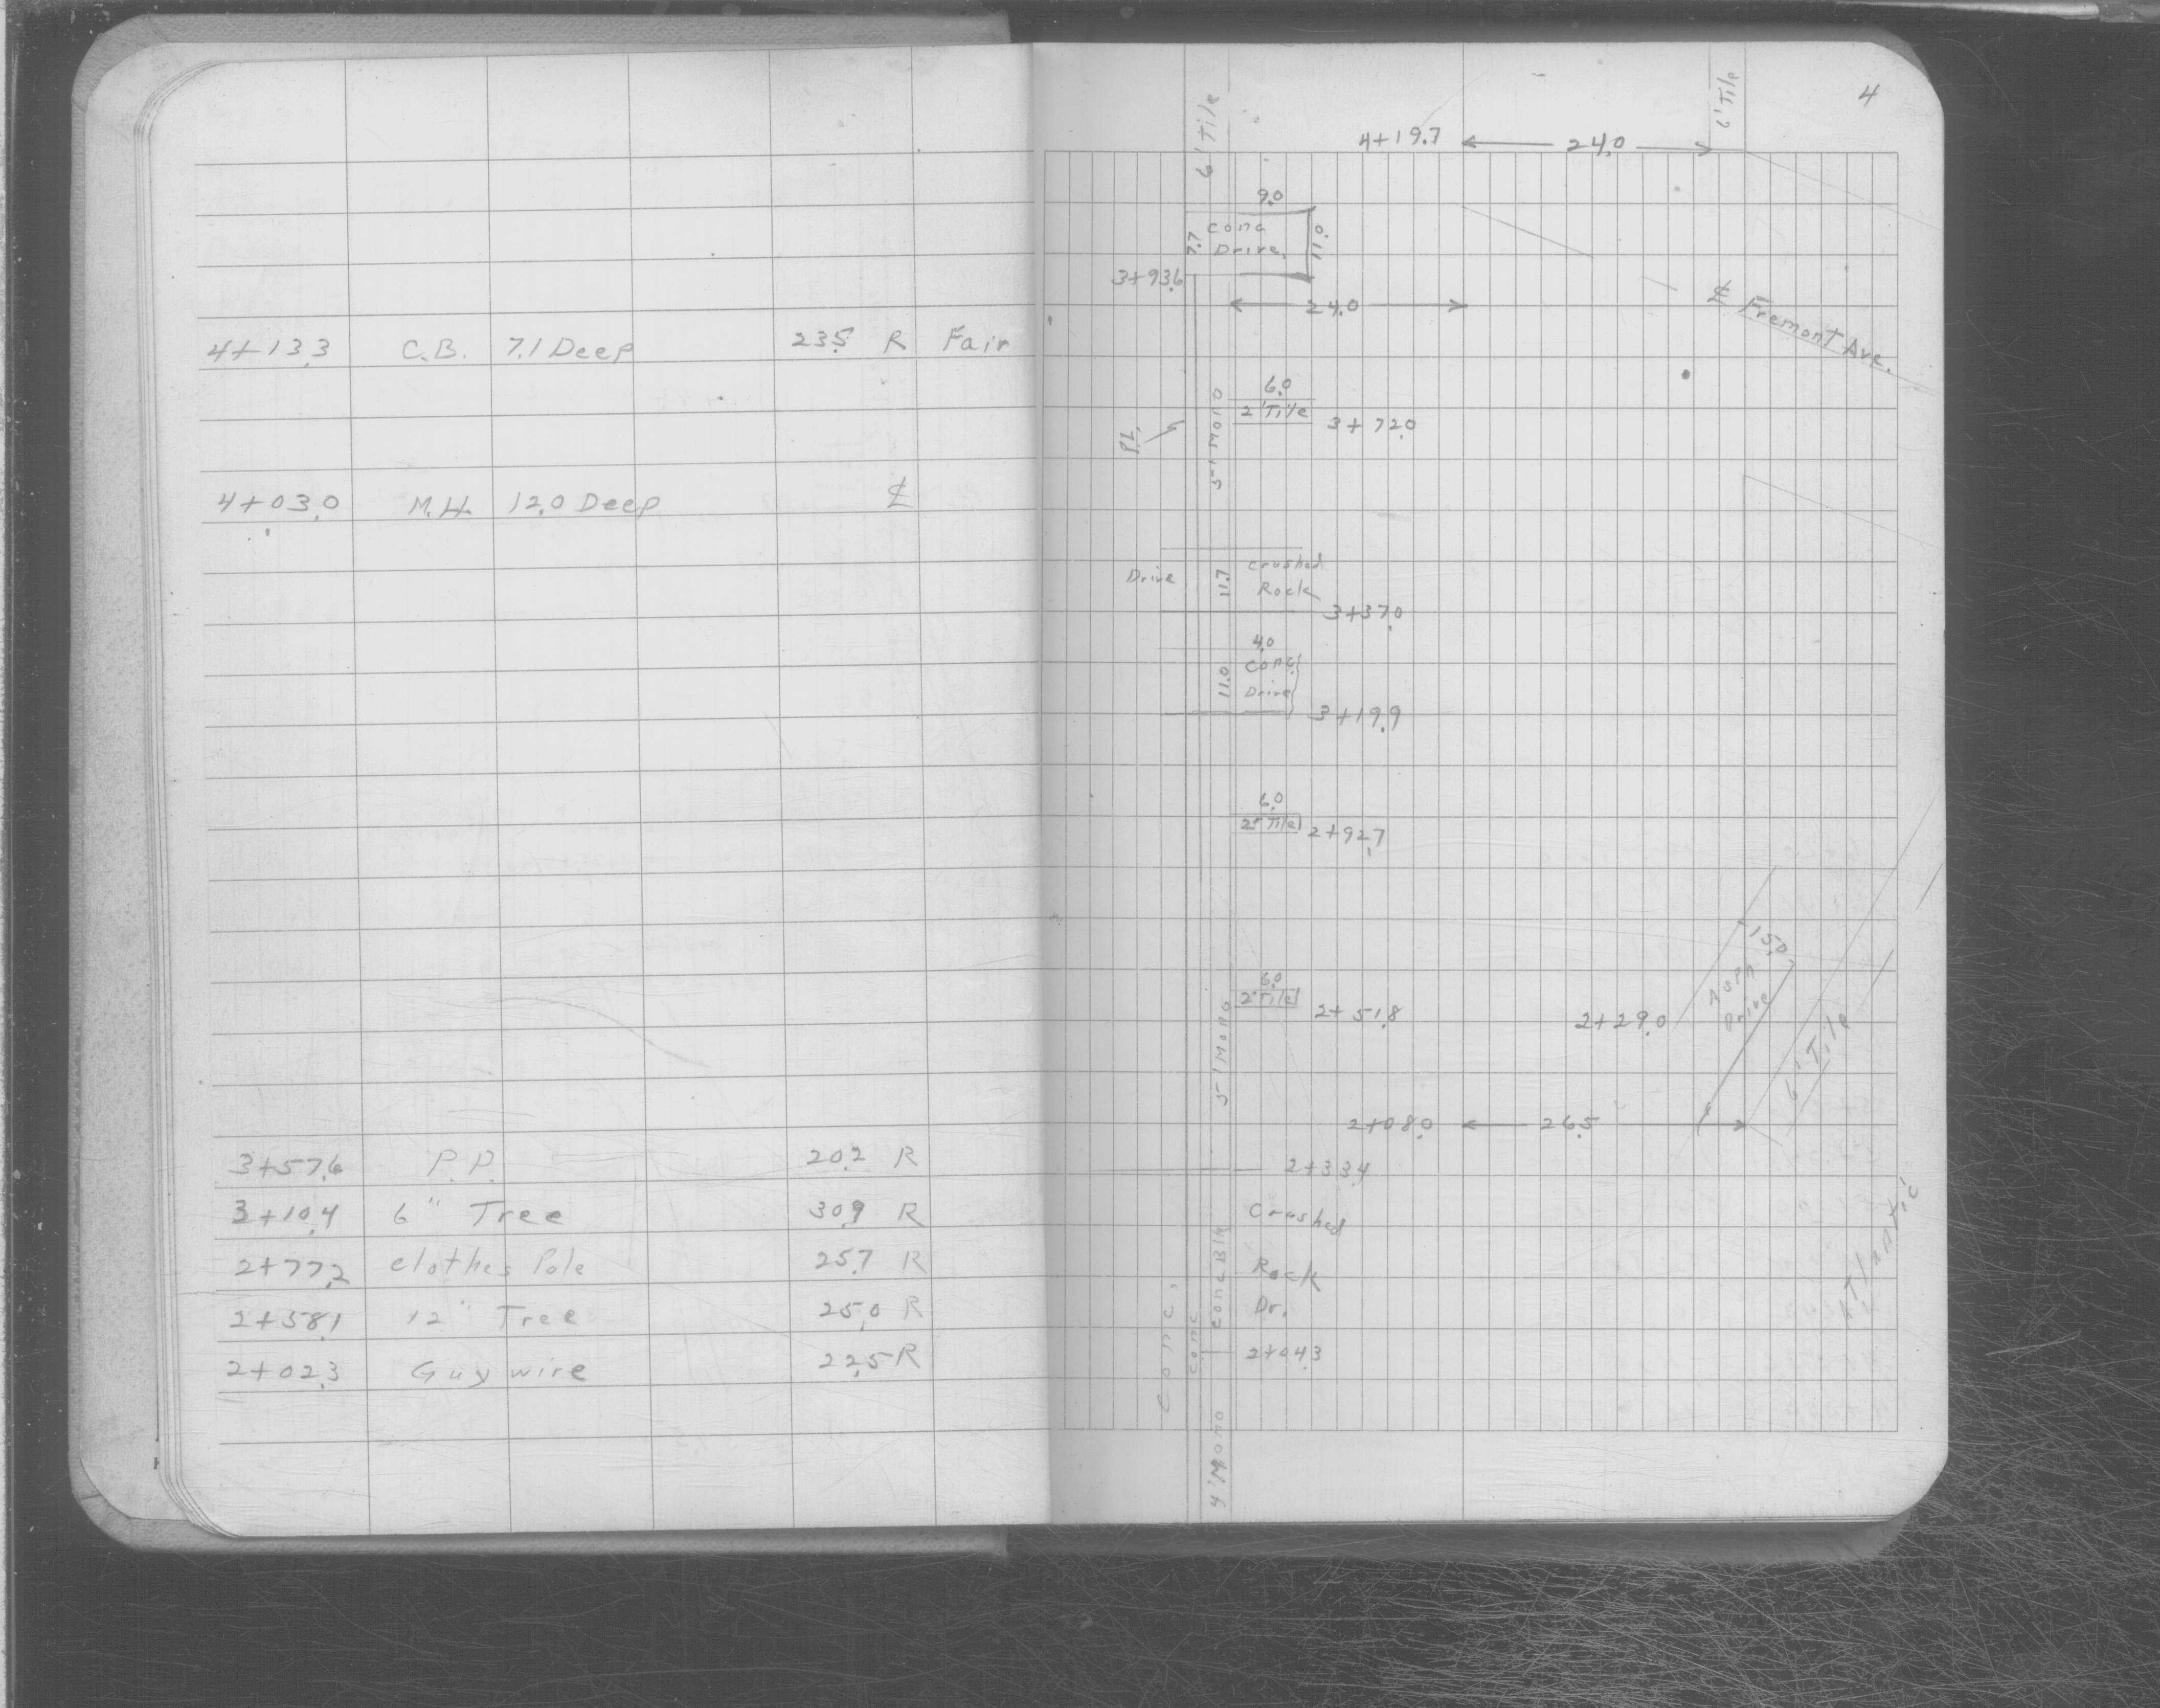 4+13.3 C.B. 7.1 Deep 23.5 R Fair
4+03.0 M.H. 12.0 Deep ℄
3+57.6 P.P. 20.2 R
3+10.4 6" Tree 30.9 R
2+77.2 clothes Pole 25.7 R
2+58.1 12" Tree 25.0 R
2+02.3 Guy wire 22.5 R
4
6' Tile
6' Tile
4+19.7 24.0
9.0
7.7 Conc 11.0
Drive
3+93.6
24.0
℄ Fremont Ave.
6.0
2' Tile
3+72.0
PL
5' Mono
Drive 11.7 Crushed
Rock
3+37.0
4.0
11.0 Conc
Drive
3+19.9
6.0
2' Tile 2+92.7
15.0
Asph
Drive
6.0
2' Tile 2+51.8
2+29.0
5' Mono
6' Tile
2+08.0 26.5
2+33.4
Crushed
Rock
Dr.
2+04.3
Conc.
Conc
Conc Blk
4' Mono
Atlantic